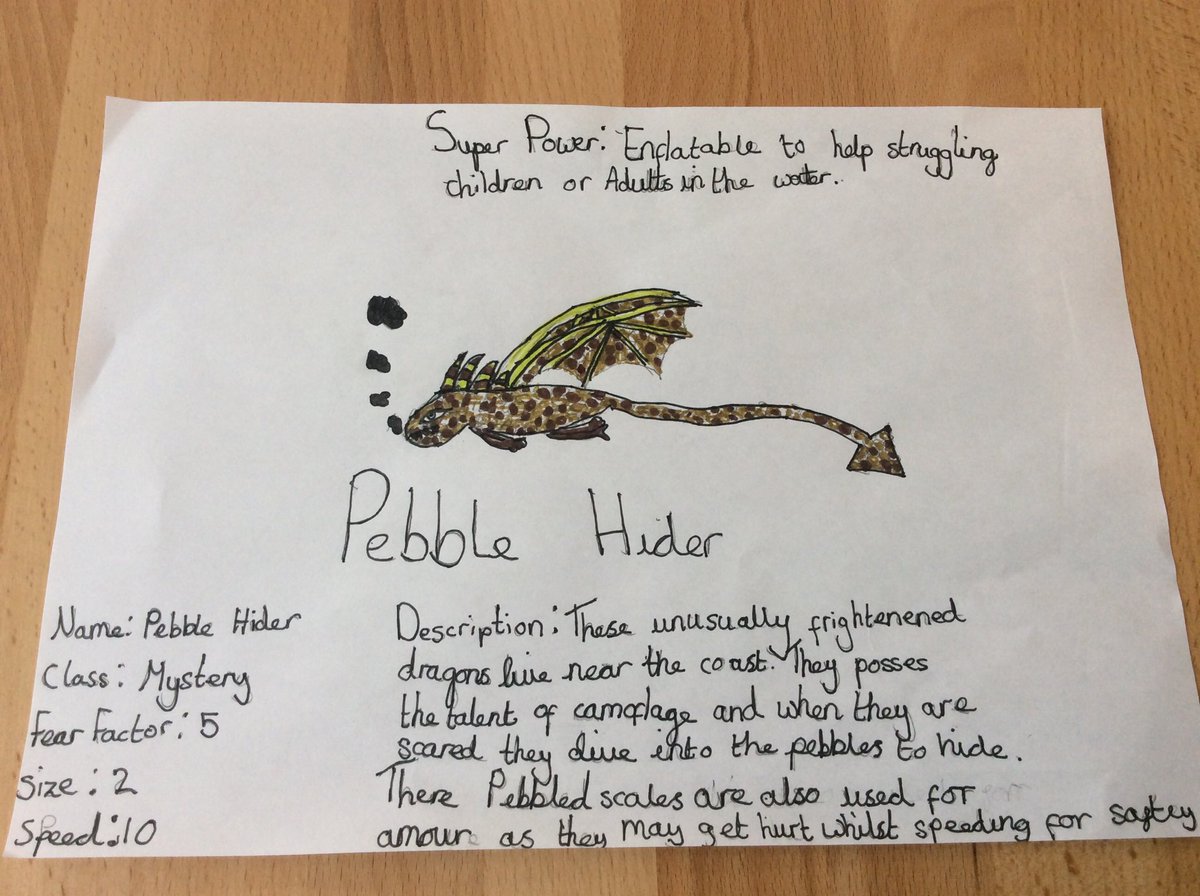 Super Power: Enflatable to help struggling
children or Adults in the water.
Pebble Hider
Name: Pebble Hider
Class: Mystery
Fear Factor: 5
Size: 2
Speed: 10
Description: These unusually frightenened
dragons live near the coast. They posses
the talent of camoflage and when they are
scared they dive into the pebbles to hide.
There Pebbled scales are also used for
amour as they may get hurt whilst speeding for saftey